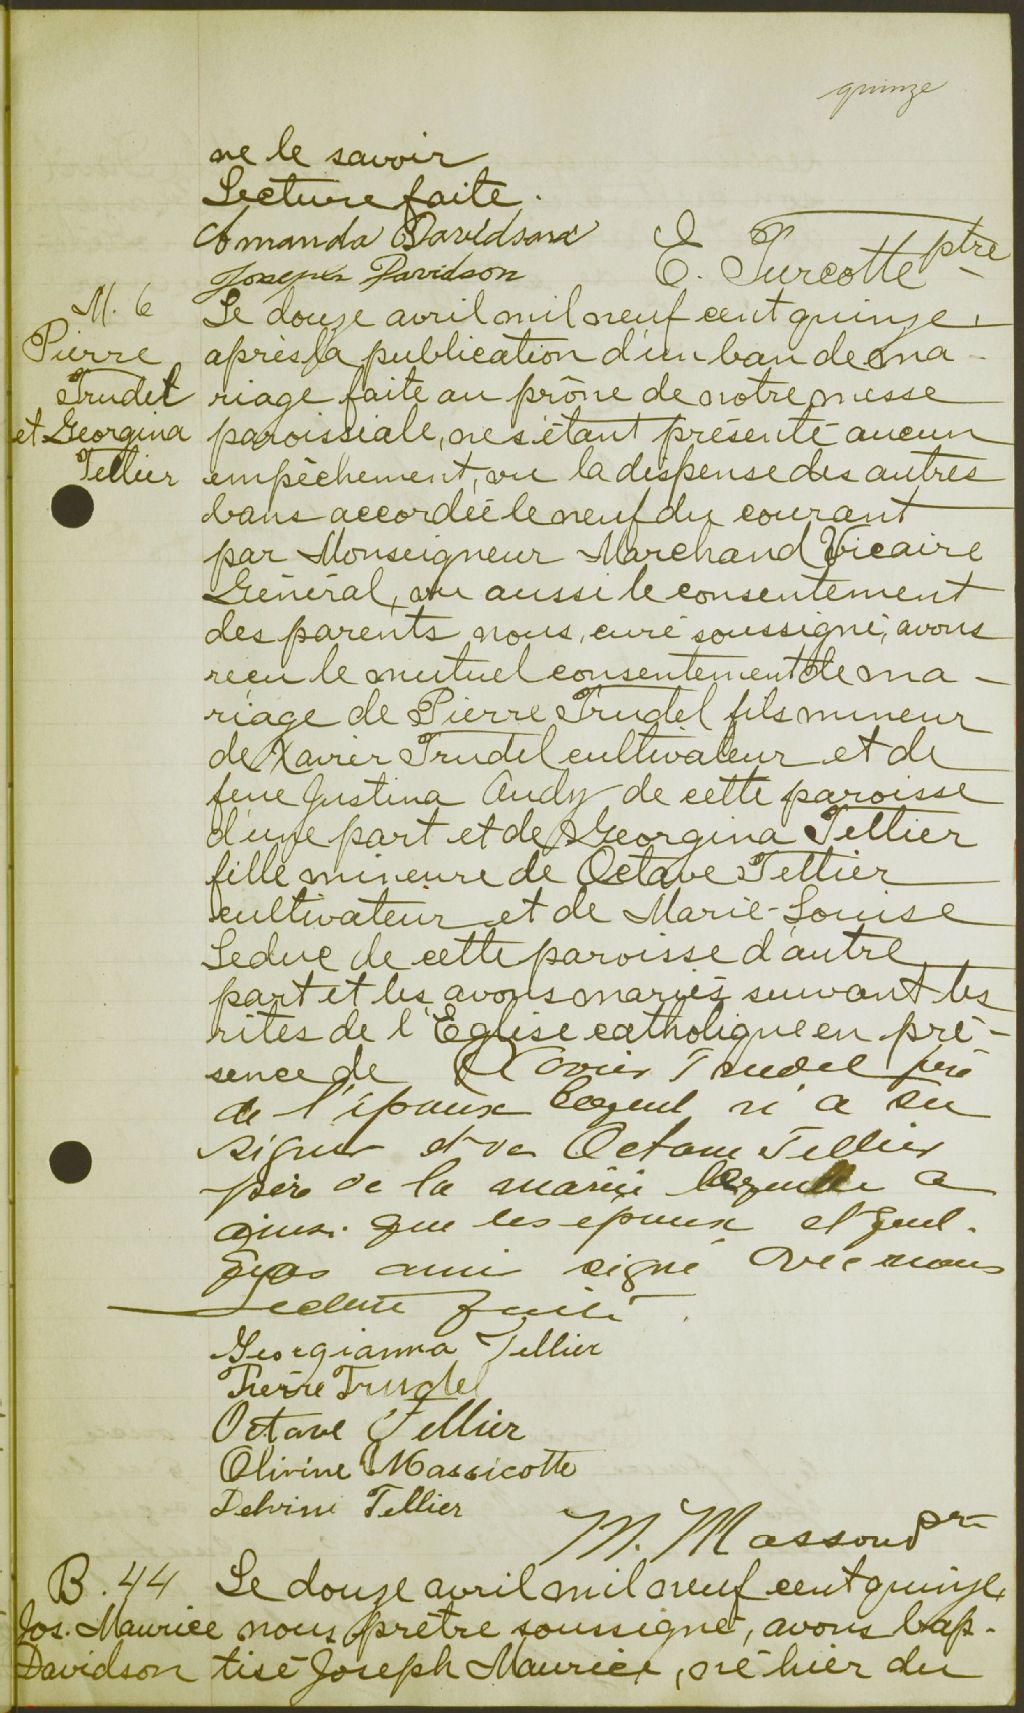 quinze
ne le savoir
Lecture faite.
Amanda Davidson
Joseph Davidson
E. Turcotte ptre
M. 6
Pierre
Trudel
et Georgina
Tellier
Le douze avril mil neuf cent quinze,
après la publication d'un ban de ma-
riage faite au prône de notre messe
paroissiale, ne s'étant présenté aucun
empêchement, vu la dispense des autres
bans accordée le neuf du courant
par Monseigneur Marchand Vicaire
Général, vu aussi le consentement
des parents, nous, curé soussigné, avons
reçu le mutuel consentement de ma-
riage de Pierre Trudel fils mineur
de Xavier Trudel cultivateur et de
feue Justina Audy de cette paroisse
d'une part et de Georgina Tellier
fille mineure de Octave Tellier
cultivateur et de Marie-Louise
Leduc de cette paroisse d'autre
part et les avons mariés suivant les
rites de l'Eglise catholique en pré-
sence de Xavier Trudel père
de l'époux lequel n'a su
signer et de Octave Tellier
père de la mariée lequel a
ainsi que les époux et quel-
ques amis signé avec nous
Lecture faite.
Georgianna Tellier
Pierre Trudel
Octave Tellier
Olivine Massicotte
Delvini Tellier
M. Massoud ptre
B. 44
Jos. Maurice
Davidson
Le douze avril mil neuf cent quinze,
nous prêtre soussigné, avons bap-
tisé Joseph Maurice, né hier du